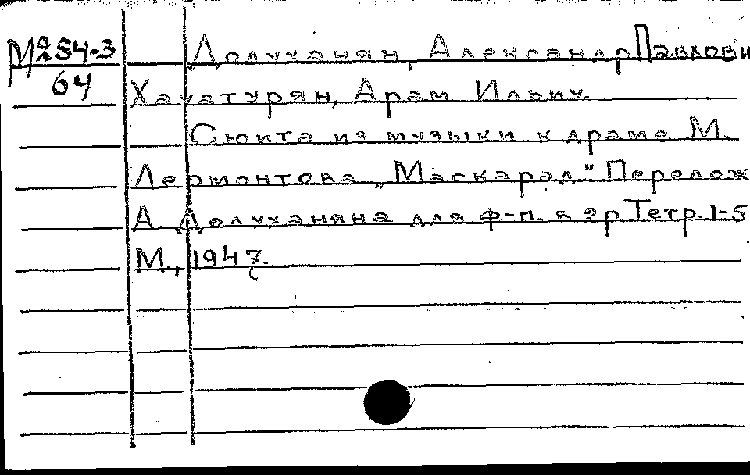 М 254-3
64
Долуханян, Александр Павлови
Хачатурян, Арам Ильич.
Сюита из музыки к драме М.
Лермонтова „Маскарад." Перелож
А Долуханяна для ф-п. в 2 р Тетр. 1-5
М., 1947.